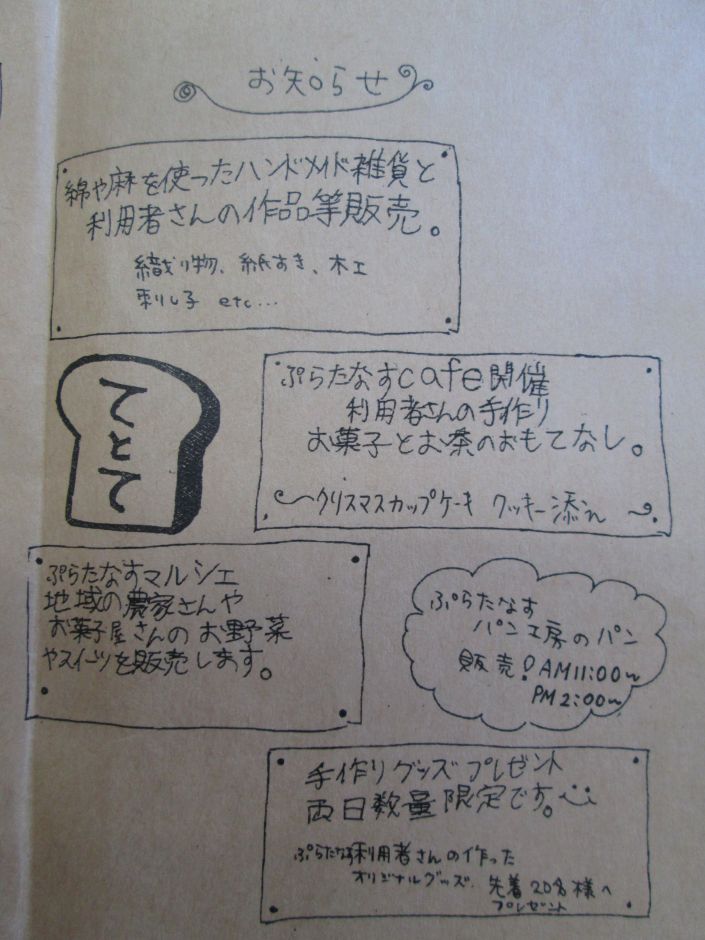 お知らせ
綿や麻を使ったハンドメイド雑貨と
利用者さんの作品等販売。
織り物、紙すき、木工
刺し子 etc...
てとて
ぷらたなすcafe開催
利用者さんの手作り
お菓子とお茶のおもてなし。
〜クリスマスカップケーキ クッキー添え〜
ぷらたなすマルシェ
地域の農家さんや
お菓子屋さんのお野菜
やスイーツを販売します。
ぷらたなす
パン工房のパン
販売!AM11:00〜
PM2:00〜
手作りグッズプレゼント
両日数量限定です。
ぷらたなす利用者さんの作った
オリジナルグッズ 先着20名様へ
プレゼント